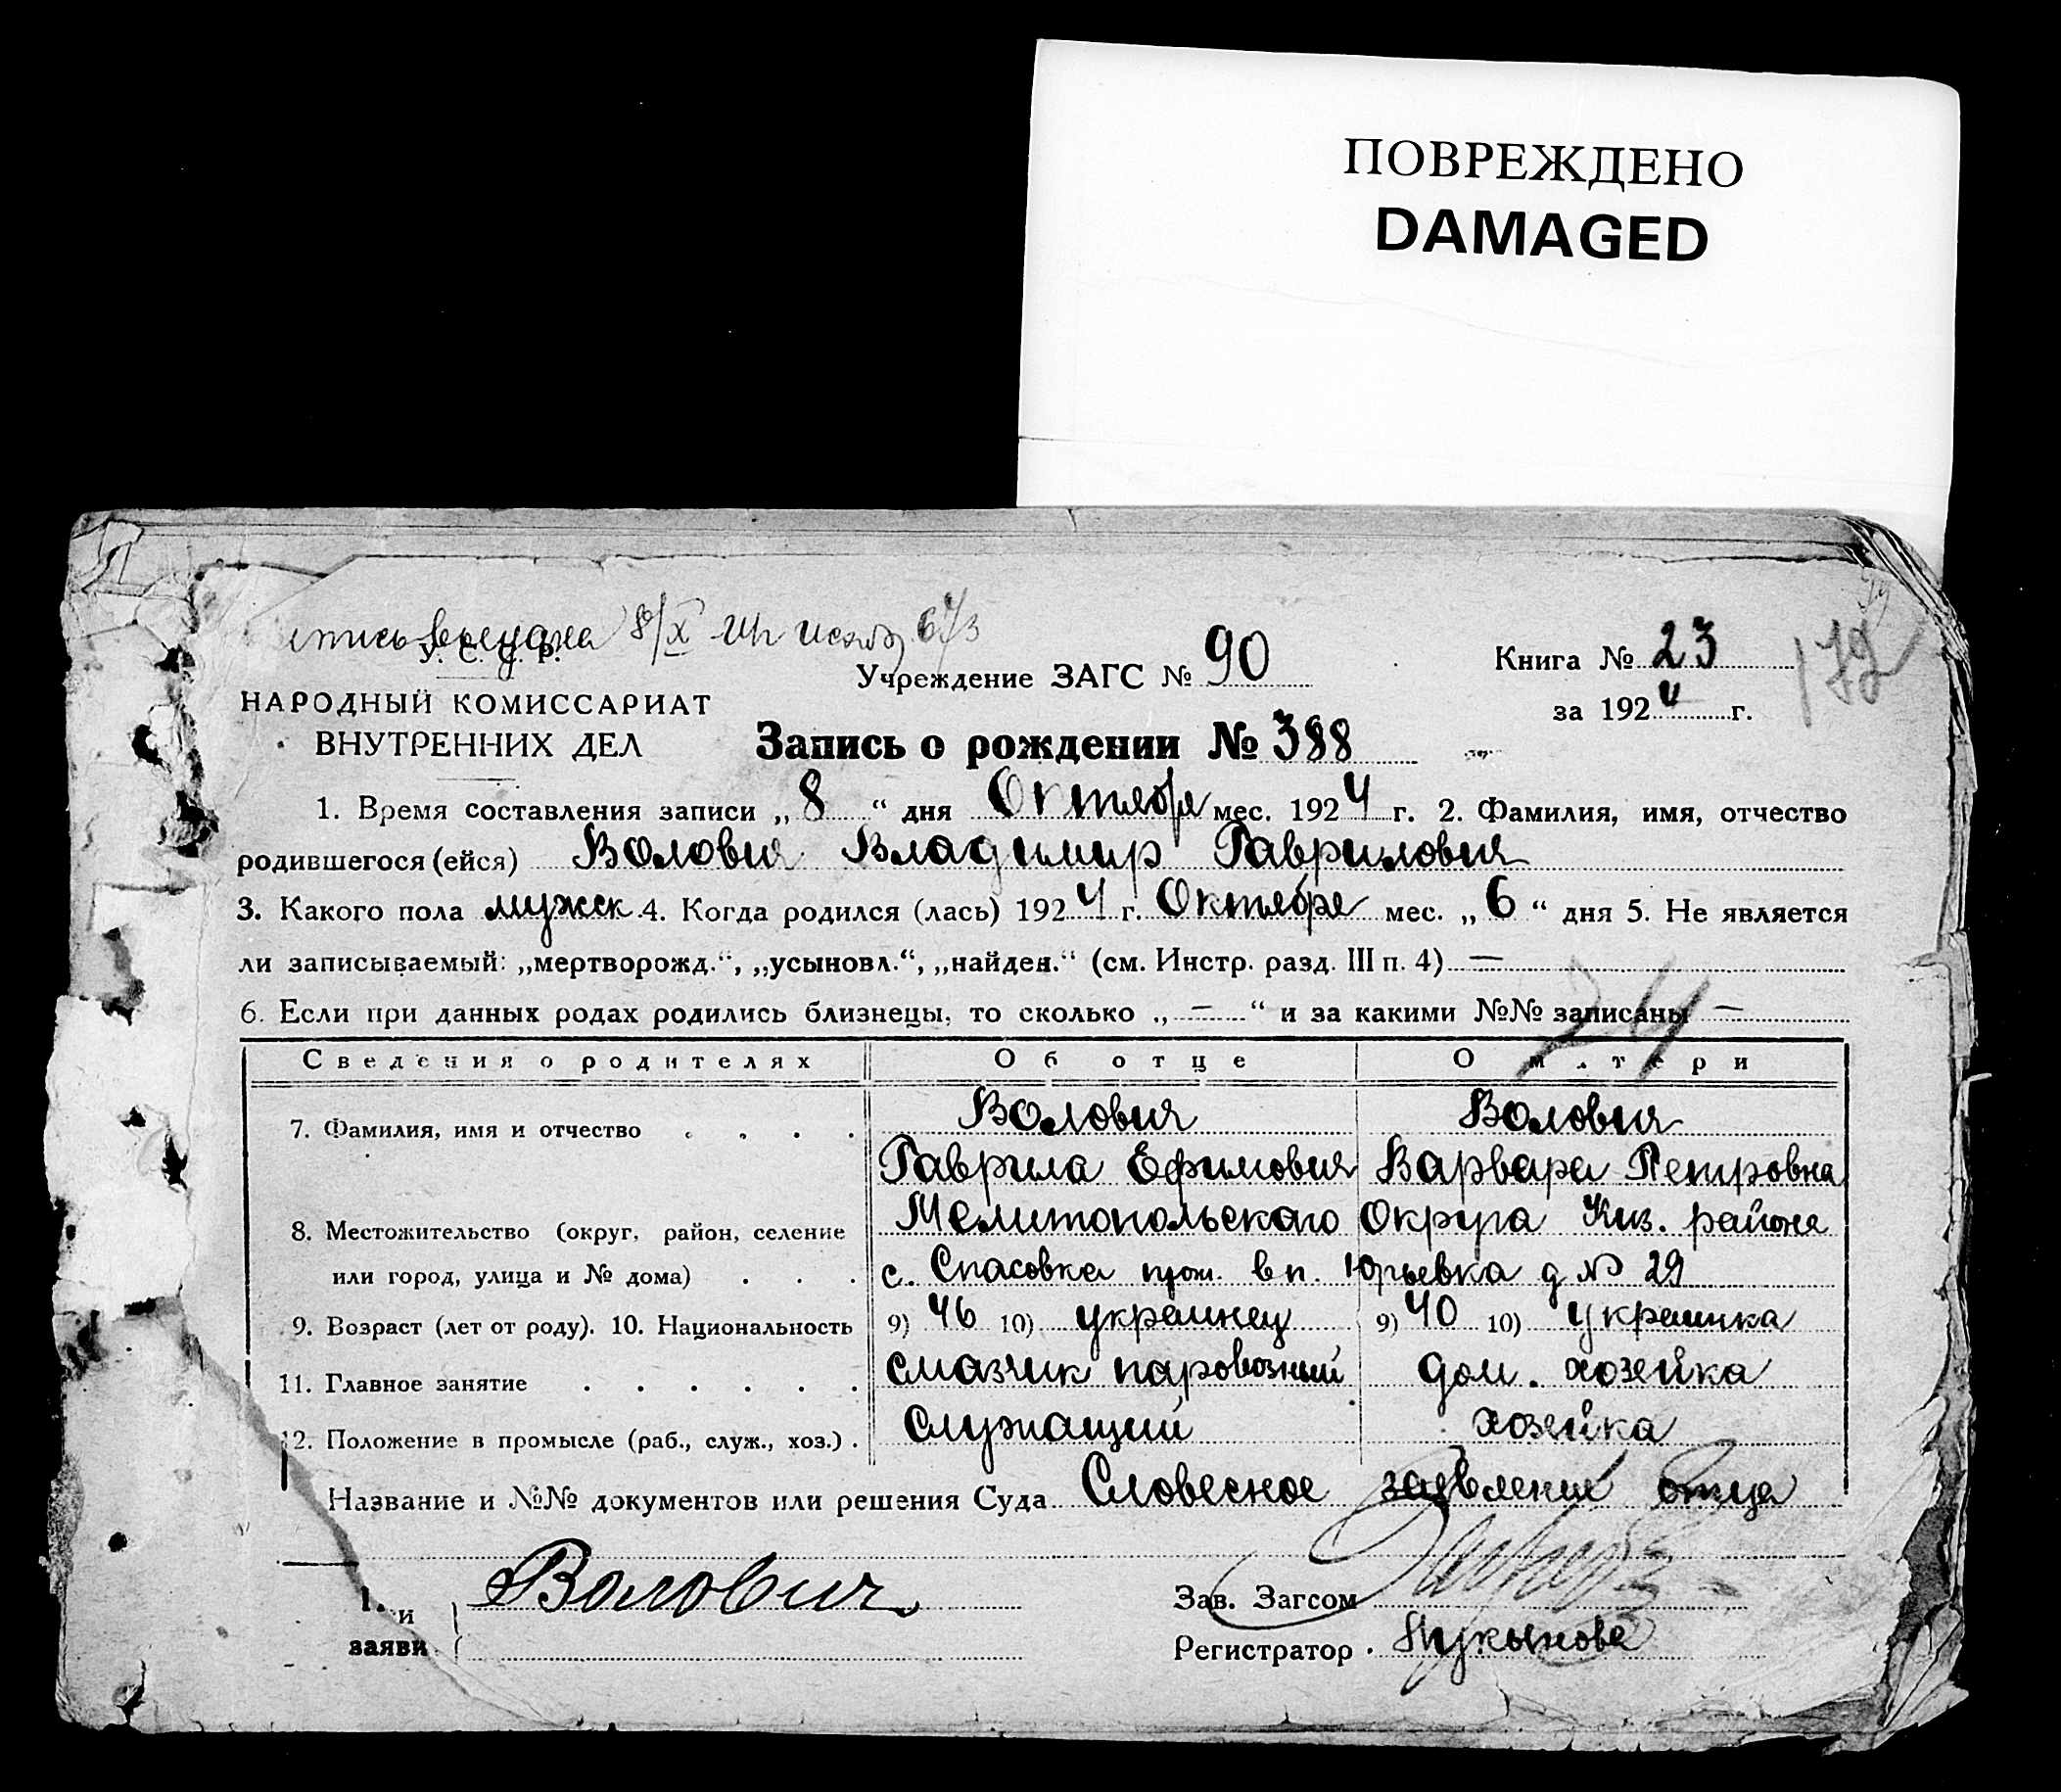 ПОВРЕЖДЕНО
DAMAGED
выпись выдана 8/X
У. С. С. Р.
НАРОДНЫЙ КОМИССАРИАТ
ВНУТРЕННИХ ДЕЛ
Учреждение ЗАГС № 90
Книга № 23
за 1924 г.
Запись о рождении № 388
1. Время составления записи „8“ дня Октября мес. 1924 г. 2. Фамилия, имя, отчество
родившегося (ейся) Волович Владимир Гаврилович
3. Какого пола мужск. 4. Когда родился (лась) 1924 г. Октября мес. „6“ дня 5. Не является
ли записываемый: „мертворожд.“, „усыновл.“, „найден.“ (см. Инстр. разд. III п. 4) —
6. Если при данных родах родились близнецы, то сколько „—“ и за какими №№ записаны —
24
Сведения о родителях Об отце О матери
7. Фамилия, имя и отчество Волович Волович
Гаврила Ефимович Варвара Петровна
8. Местожительство (округ, район, селение Мелитопольскаго Округа Киз. района
или город, улица и № дома) с. Спасовка прож. в п. Юрьевка д № 29
9. Возраст (лет от роду). 10. Национальность 9) 46 10) украинец 9) 40 10) украинка
11. Главное занятие смазчик паровозный дом. хозейка
12. Положение в промысле (раб., служ., хоз.) служащий хозейка
Название и №№ документов или решения Суда Словесное заявление отца
и Волович Зав. Загсом
заяви Регистратор